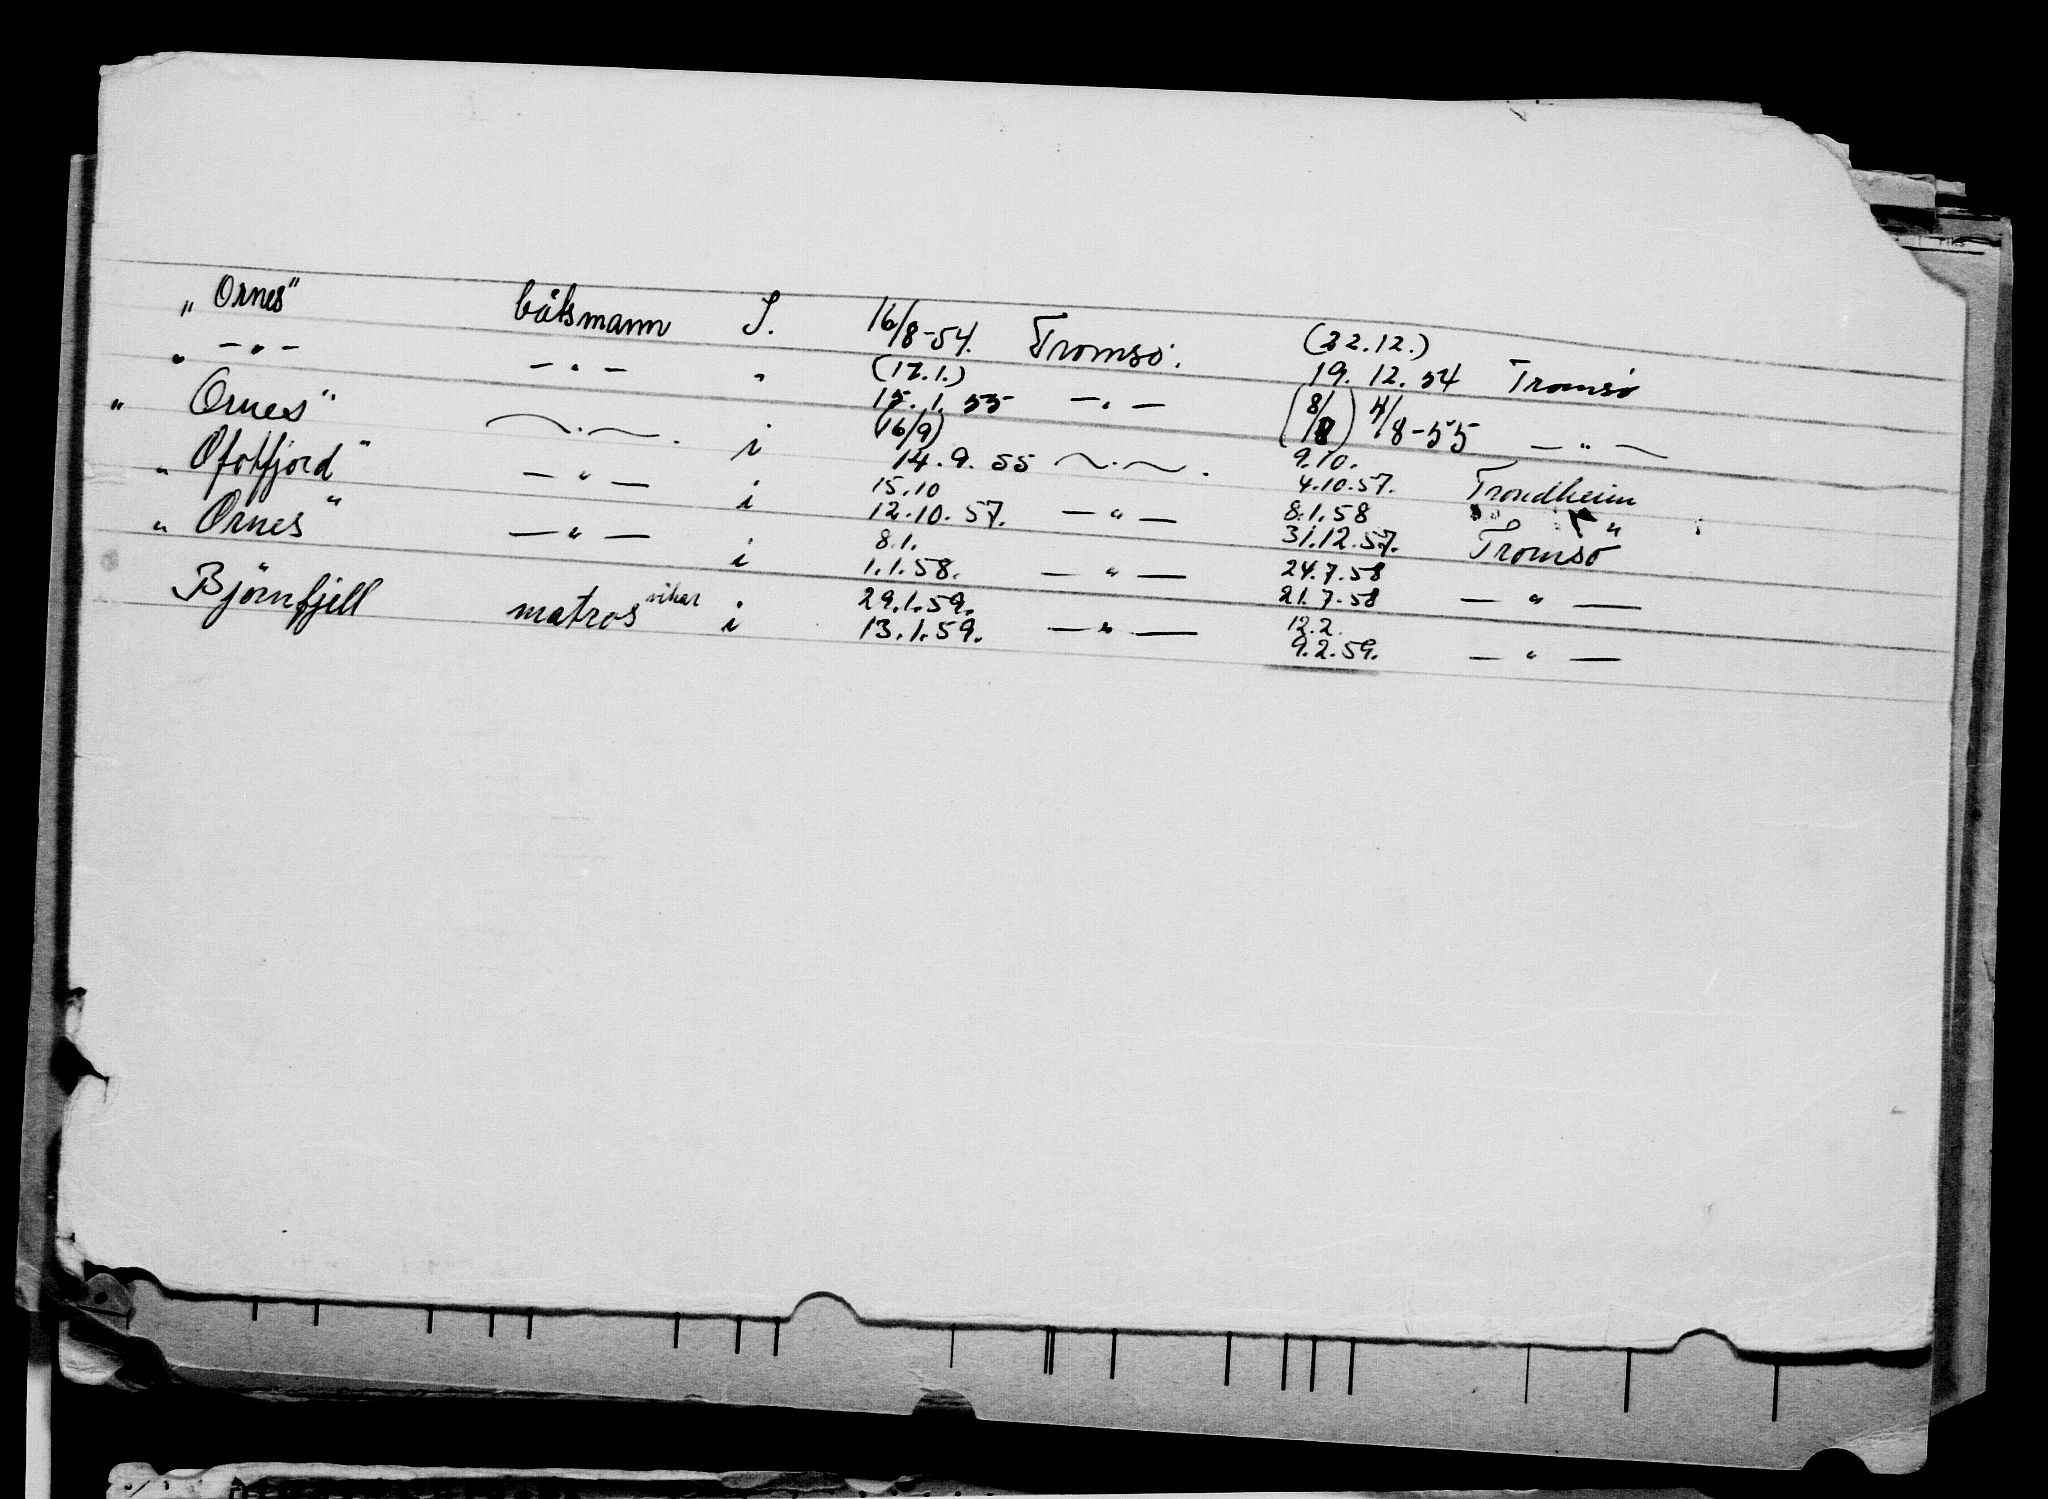 „ Ornes" båtsmann S. 16/8-54. Tromsö. (22.12.) 19.12.54 Tromsö
„ — „ — — „ — „ (17.1.) 15.1.55 — „ — (8/8) 4/8-55 — „ —
„ Ornes" — „ — . i (16/9) 14.9.55 — „ — . 9.10. 4.10.57. Trondheim
„ Ofotfjord" — „ — i 15.10 12.10.57. — „ — 8.1.58 31.12.57. Tromsö "
„ Ornes" — „ — i 8.1. 1.1.58. — „ — 24.7.58 21.7.58 — „ —
Björnfjell matros vikar i 29.1.59. i 13.1.59. — „ — 12.2. 9.2.59. — „ —